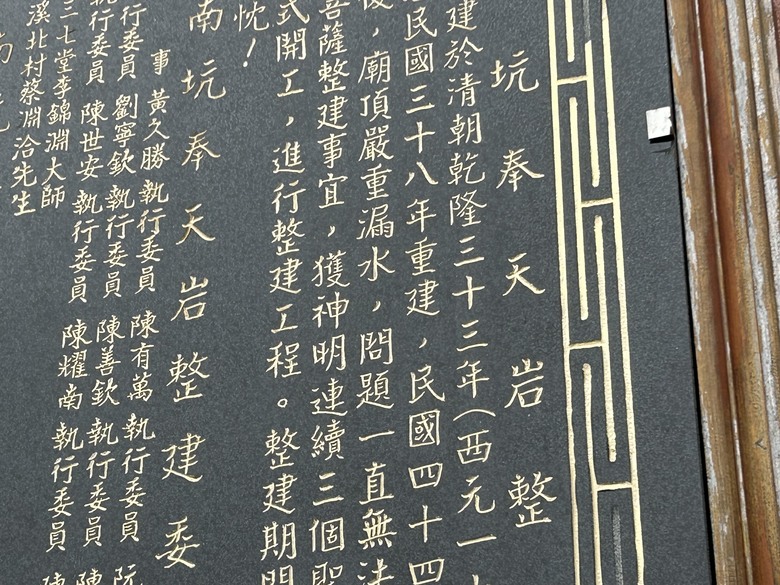 坑奉天岩整
建於清朝乾隆三十三年（西元一
民國三十八年重建，民國四十四
，廟頂嚴重漏水，問題一直無法
菩薩整建事宜，獲神明連續三個
式開工，進行整建工程。整建期
忱！
南坑奉天岩整建委
事 黃久勝 執行委員 陳有萬 執行委員 阮
執行委員 劉寧欽 執行委員 陳善欽 執行委員 陳
執行委員 陳世安 執行委員 陳耀南 執行委員 陳
三七堂李錦淵大師
溪北村蔡淵治先生